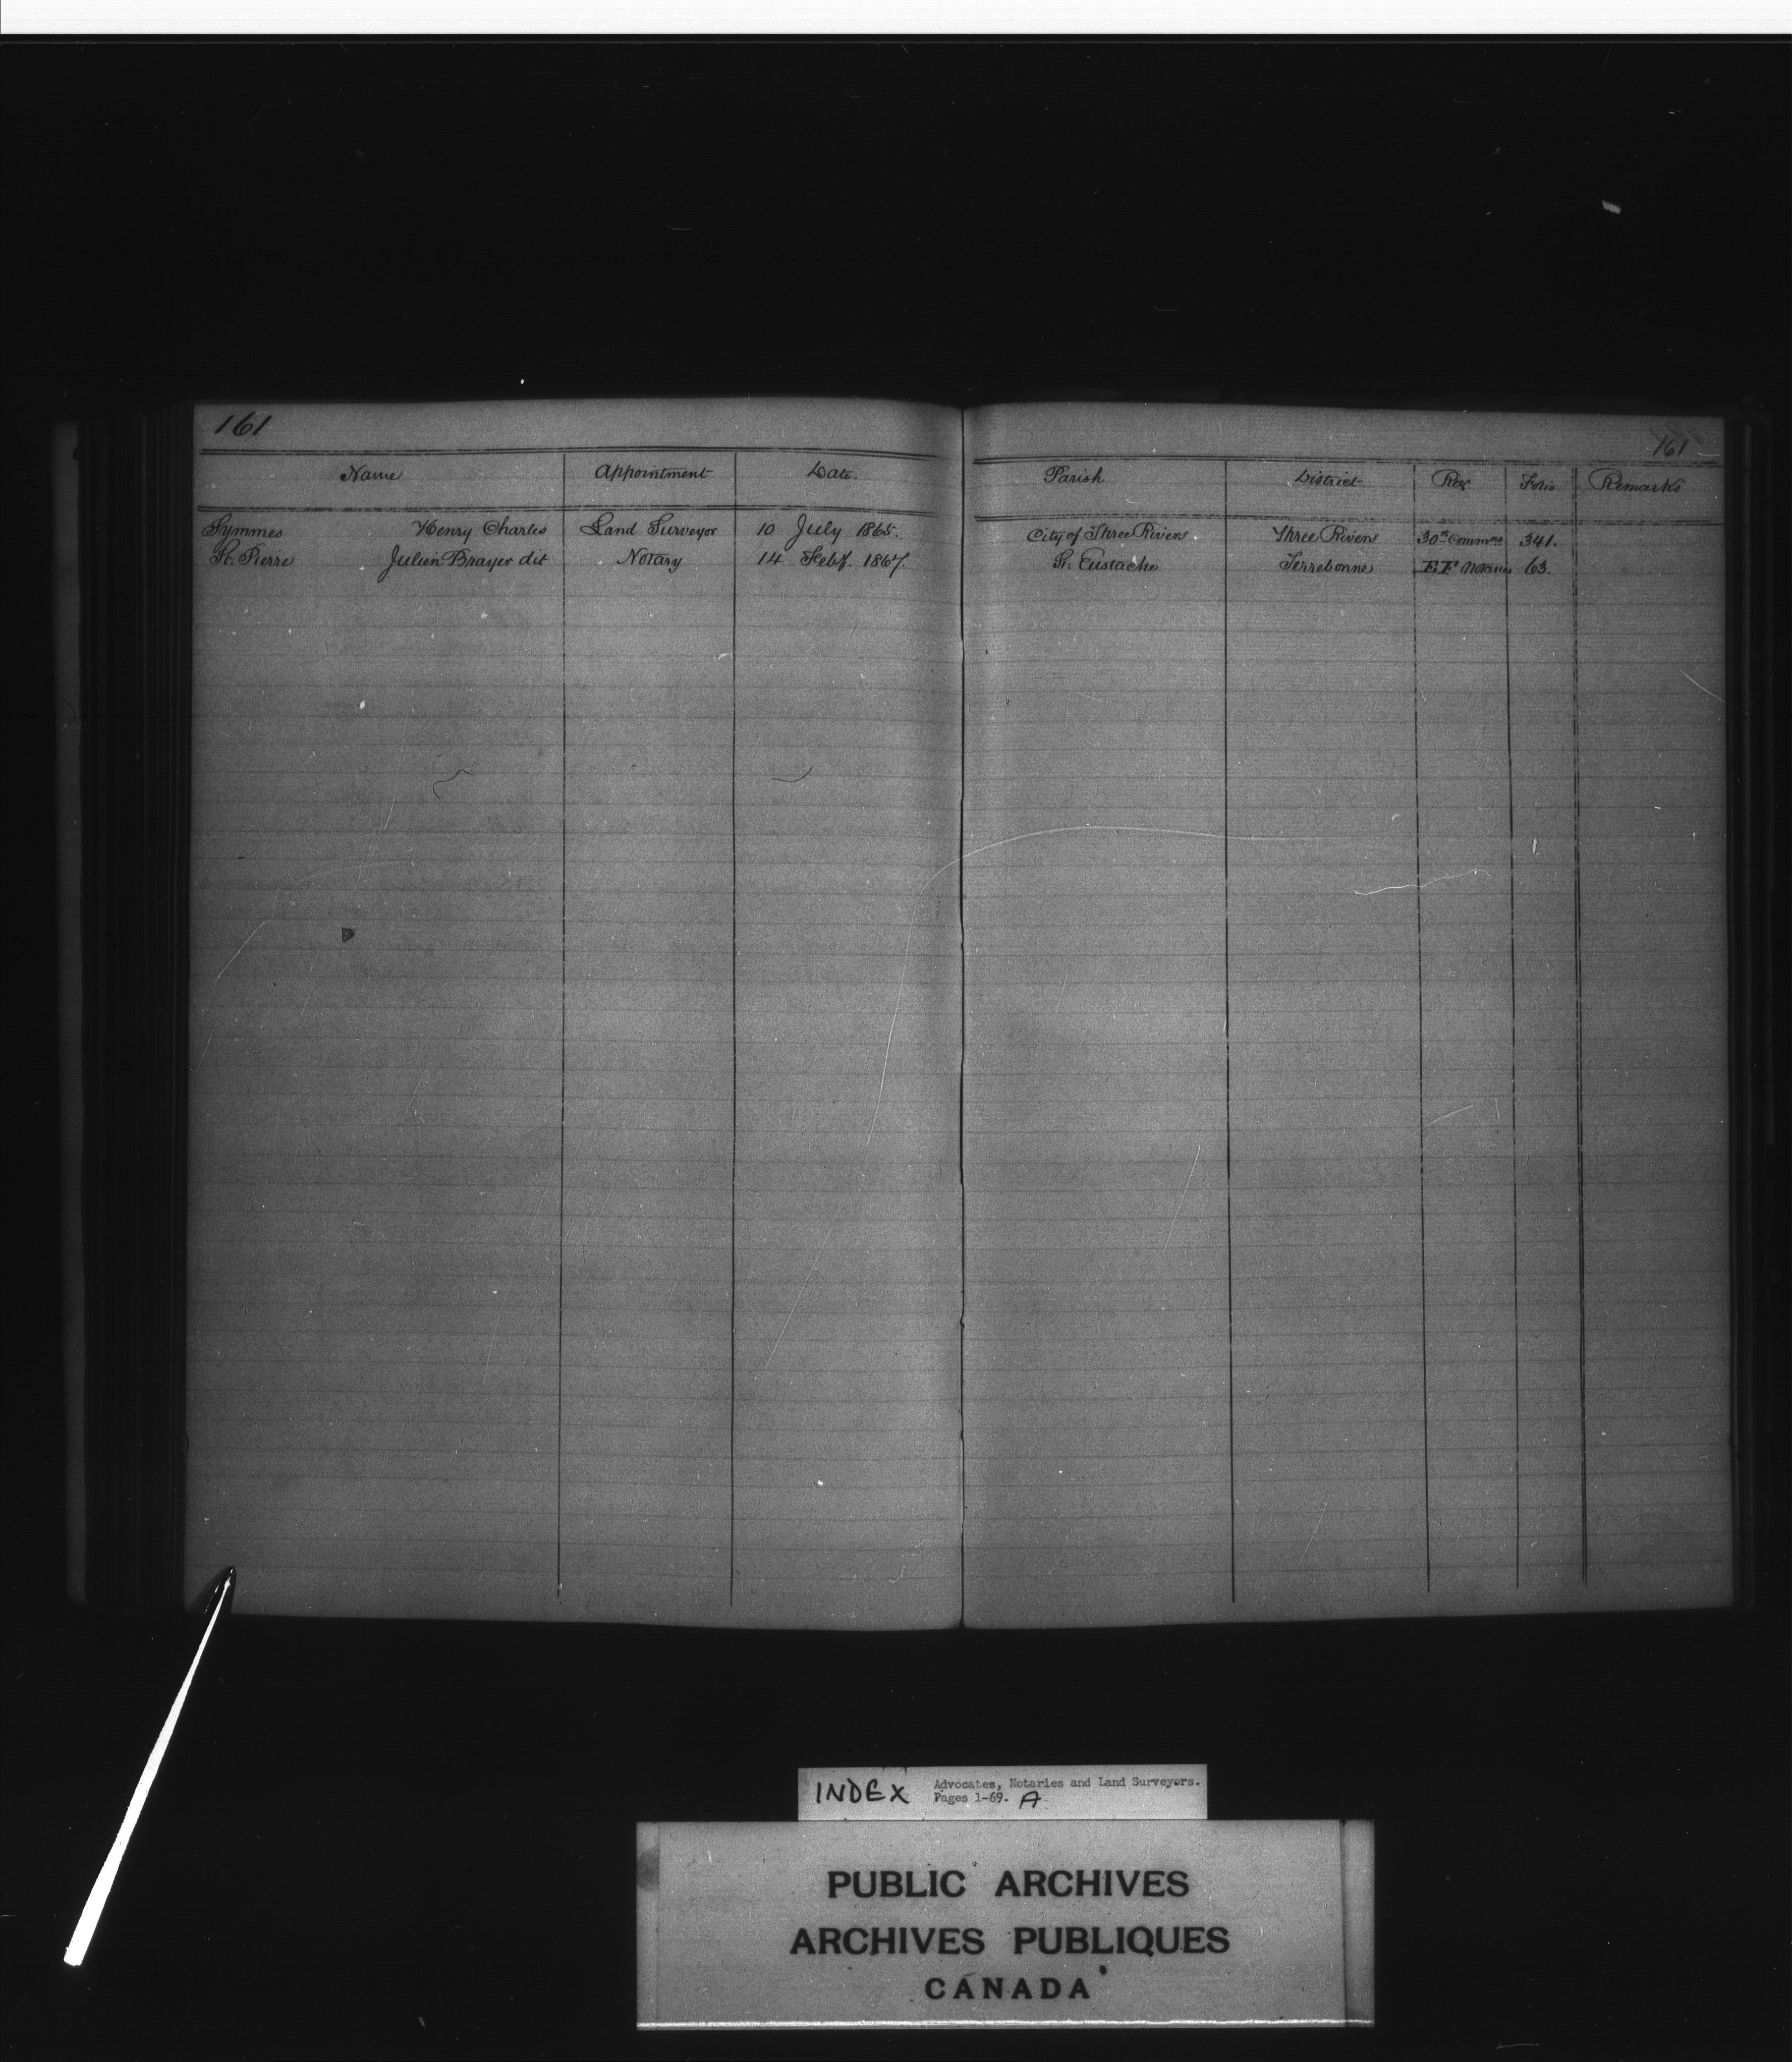 161
161
Name Appointment Date. Parish District Reg. Folio Remarks
Symmes Henry Charles Land Surveyor 10 July 1865. City of Three Rivers. Three Rivers 30th Commns 341.
St. Pierre Julien Brayer dit Notary 14 Feby. 1867. St. Eustache Terrebonne EF Notaries 63.
INDEX Advocates, Notaries and Land Surveyors.
Pages 1-69. A
PUBLIC ARCHIVES
ARCHIVES PUBLIQUES
CANADA